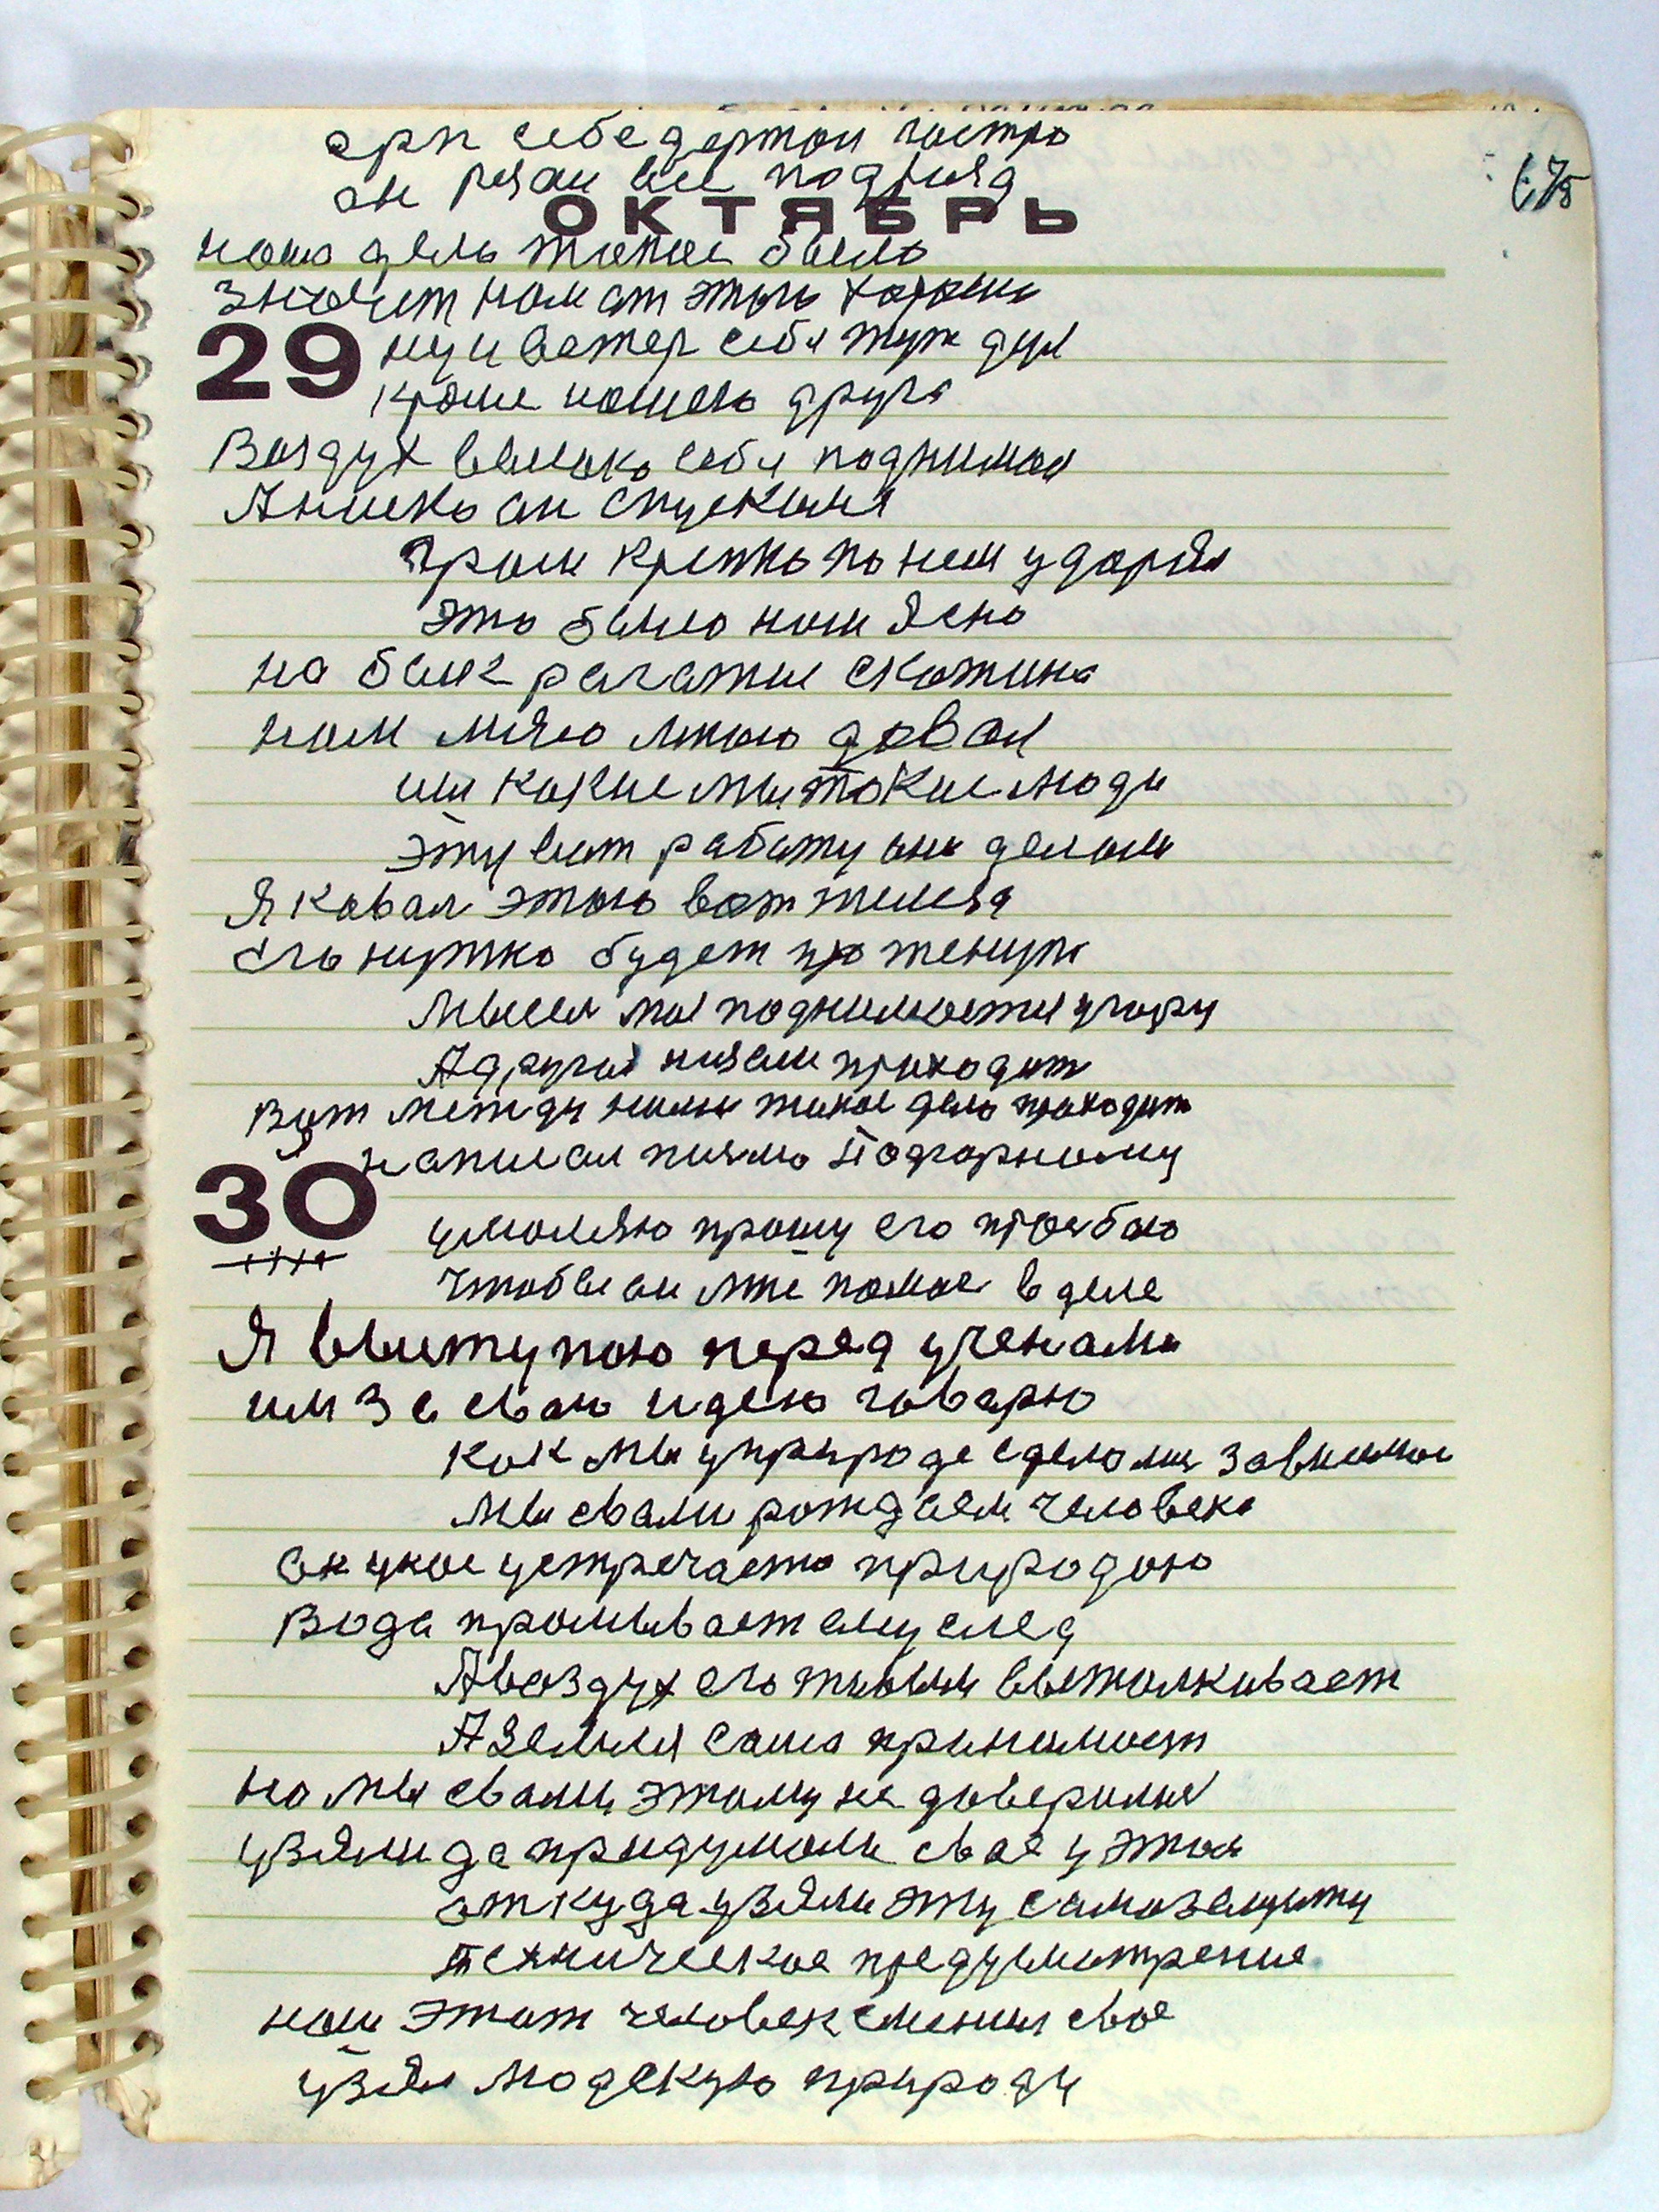 серп себе держал часто
он резал все подряд
ОКТЯБРЬ
наше дело такое было
значит нам от этого хороше
29
ну и ветер себя туж дул
кроме нашего друга
Воздух высоко себя поднимал
А ниско он спускался
Гром крепко по нем ударял
это было нам ясно
на бык рагатые скотина
нам мясо много давал
мы какие мы такие люди
эту вот работу они делали
Я ковал этого вот железа
его нужно будет
Мысел мая поднимается угору
А другая низами приходит
Вот между нами такое дело проходит
написал письмо Подгорному
30
умоляю прошу его прозбою
Чтобы он мне помог в деле
Я выступаю перед учеными
им за сваю идею говарю
как мы у природе сделались зависимые
мы свами рождаем человека
он у нас устречается природою
Вода промывает ему след
А воздух его живым выталкивает
А Земля сама принимает
но мы свами этому не доверились
узяли да придумали свае у этом
откуда узяли эту самозащиту
техническое предусмотрение
нам этот человек сменил свае
узял людскую природу